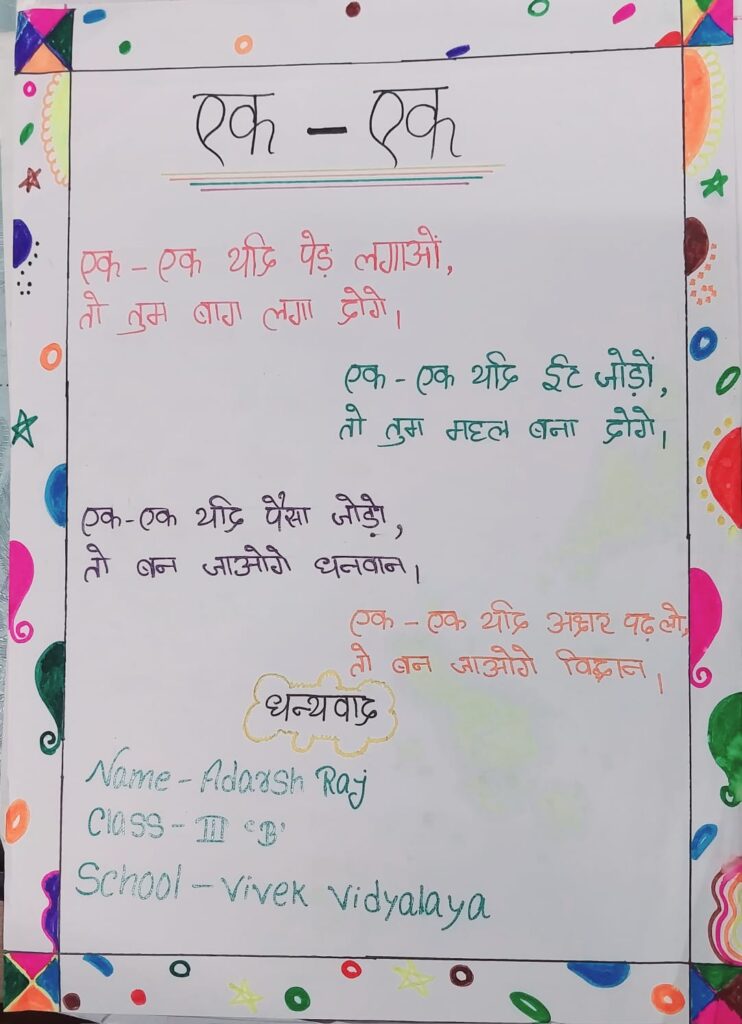 एक - एक
एक - एक यदि पेड़ लगाओं,
तो तुम बाग लगा दोगे।
एक - एक यदि ईट जोड़ों,
तो तुम महल बना दोगे।
एक-एक यदि पैसा जोड़ो,
तो बन जाओगे धनवान।
एक - एक यदि अक्षर पढ़ लो,
तो बन जाओगे विद्वान।
धन्यवाद
Name - Adarsh Raj
Class - III 'B'
School - Vivek Vidyalaya